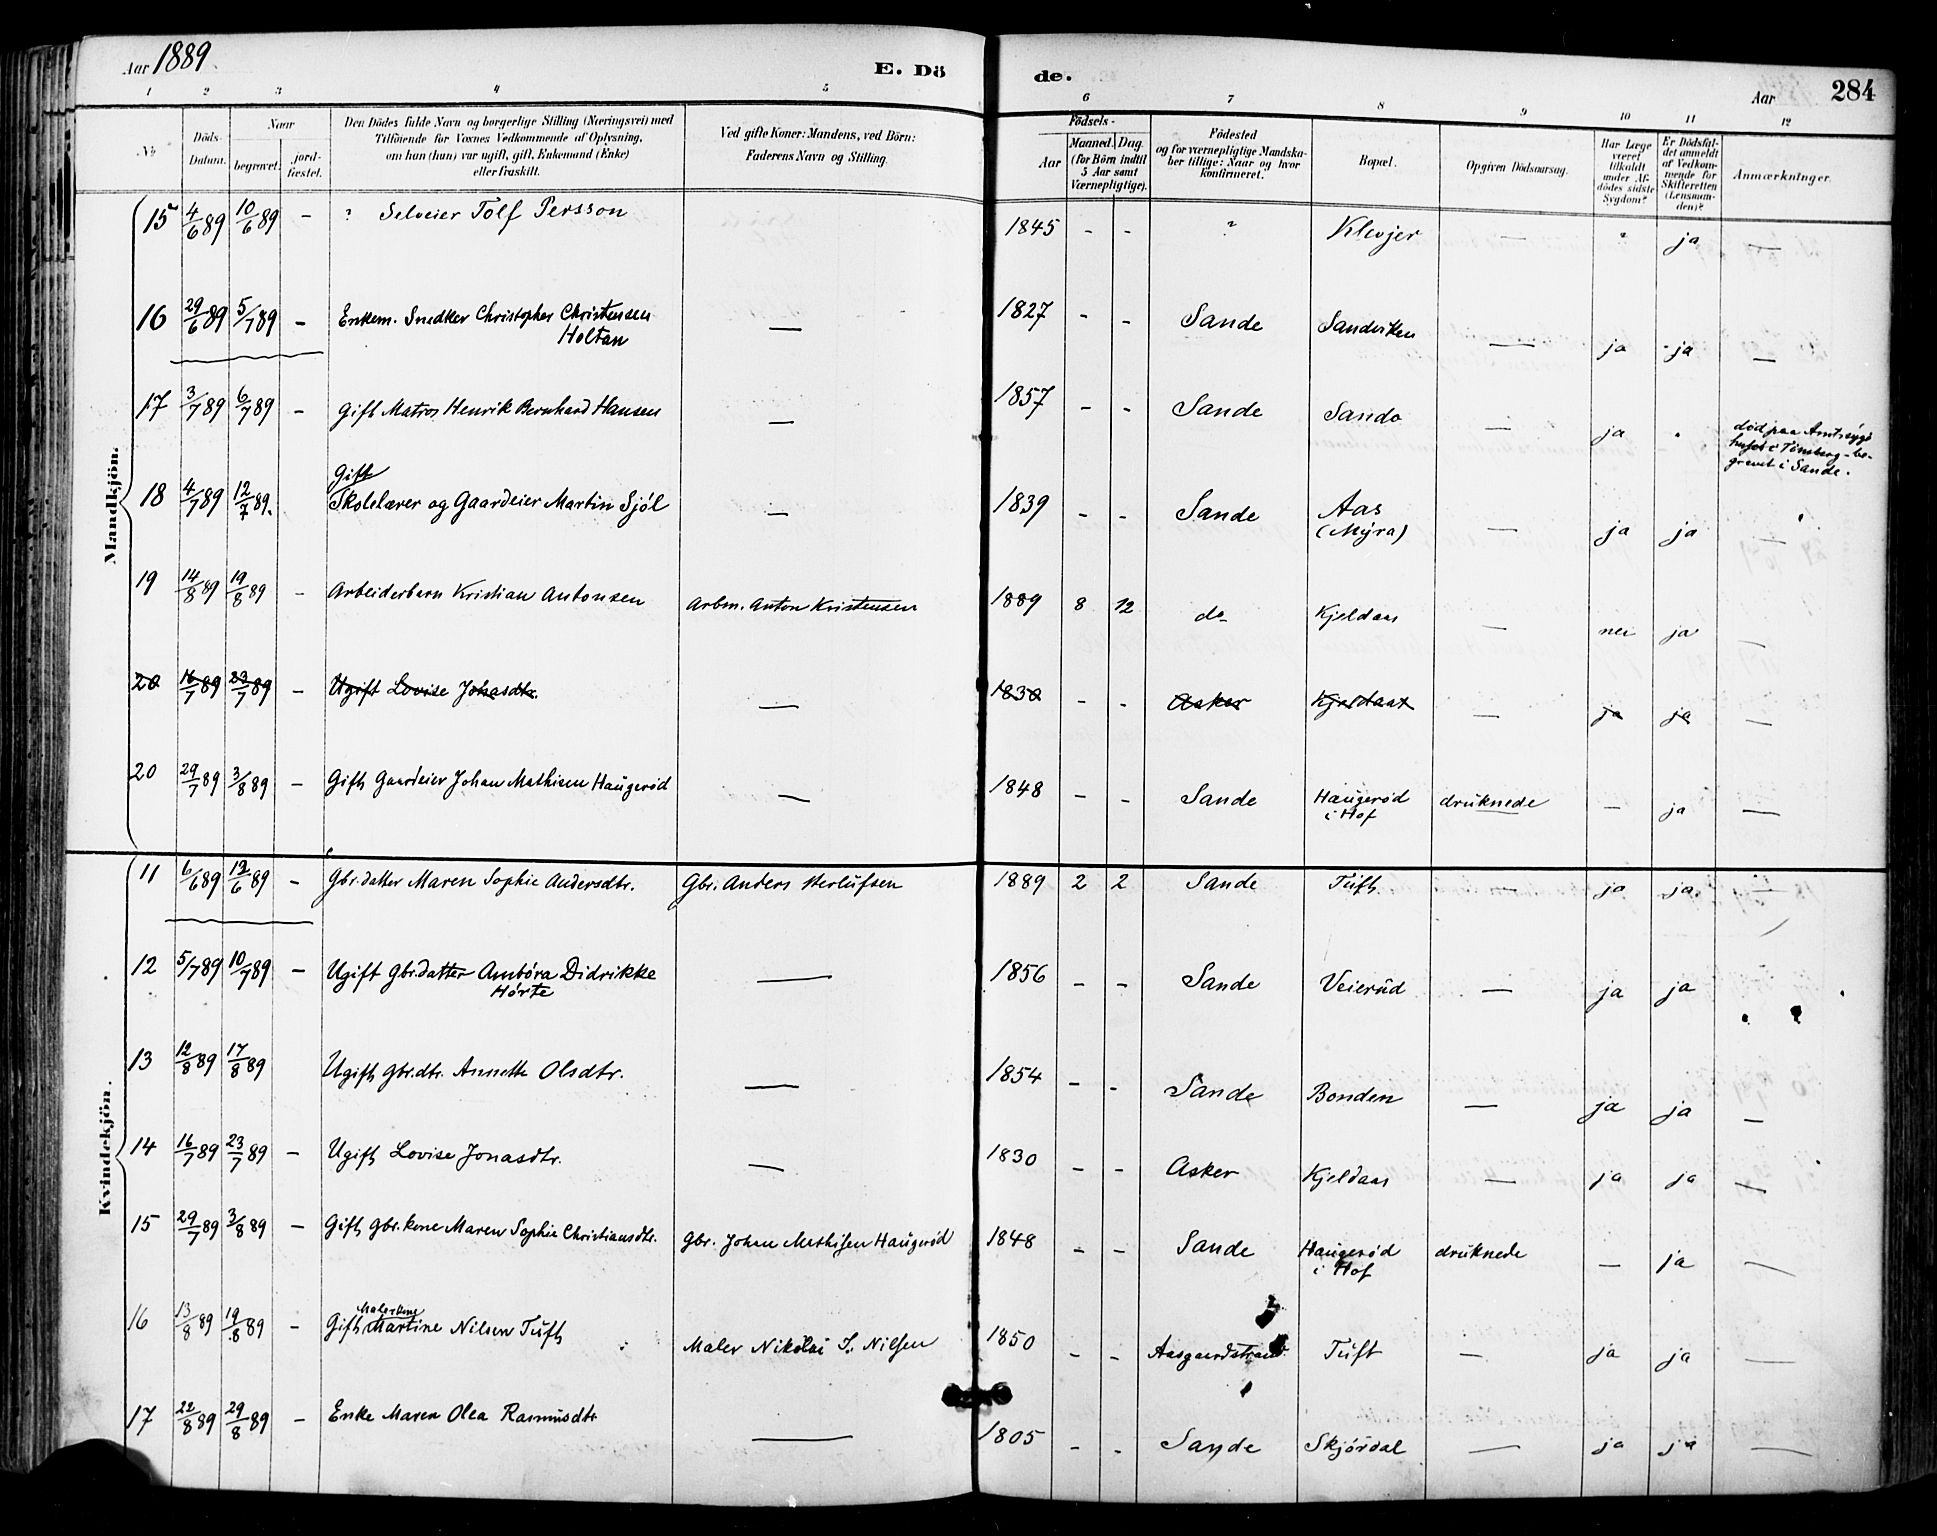 Aar 1889 E. Dö de. Aar 284
1 2 3 4 5 6 7 8 9 10 11 12
No
Döds-Datum.
Naar
begravet.
jord-fæstet.
Den Dödes fulde Navn og borgerlige Stilling (Næringsvei) med
Tilföiende for Voxnes Vedkommende af Oplysning,
om han (hun) var ugift, gift, Enkemand (Enke)
eller fraskilt.
Ved gifte Koner: Mandens, ved Börn:
Faderens Navn og Stilling.
Födsels-
Aar
Maaned. Dag.
(for Börn indtil
5 Aar samt
Værnepligtige).
Födested
og for værnepligtige Mandska-
ber tillige: Naar og hvor
konfirmeret.
Bopæl.
Opgiven Dödsaarsag.
Har Læge
været
tilkaldt
under Af-
dödes sidste
Sygdom?
Er Dödsfal-
det anmeldt
af Vedkom-
mende for
Skifteretten
(Lensman-
den)?
Anmærkninger.
Mandkjön.
15 4/6 89 10/6 89 - ? Selveier Tolf Persson 1845 - - ? Klevjer — ? ja —
16 29/6 89 5/7 89 - Enkem. Snedker Christopher Christensen
Holtan — 1827 - - Sande Sandviken — ja ja —
17 3/7 89 6/7 89 - Gift Matros Henrik Bernhard Hansen — 1857 - - Sande Sando — ja
død paa Amtsyge
huset i Tønsberg - be-
gravet i Sande.
18 4/7 89 12/7 89. Gift
Skolelærer og Gaardeier Martin Sjøl — 1839 - - Sande Aas
(Myra) — ja ja —
19 14/8 89 19/8 89 - Arbeiderbarn Kristian Antonsen Arbm. Anton Kristensen 1889 8 12 do Kjeldaas — nei ja —
20 16/7 89 23/7 89 - Ugift Lovise Johasdtr. — 1830 - - Asker Kjeldaas — ja ja —
20 29/7 89 3/8 89 - Gift Gaardeier Johan Mathisen Haugerød — 1848 - - Sande Haugerød
i Hof druknede — ja —
Kvindekjön.
11 6/6 89 12/6 89 - Gbr.datter Maren Sophie Andersdtr. Gbr. Anders Herlufsen 1889 2 2 Sande Tuft — ja ja
12 5/7 89 10/7 89 - Ugift Gbr.datter Ambøra Didrikke
Hørte — 1856 - - Sande Veierud — ja ja
13 12/8 89 17/8 89 Ugift Gbr.dtr. Annette Olsdtr. — 1854 - - Sande Bonden — ja ja —
14 16/7 89 23/7 89 - Ugift Lovise Jonasdtr. — 1830 - - Asker Kjeldaas — ja ja —
15 29/7 89 3/8 89 - Gift Gbr.kone Maren Sophie Christiansdtr. Gbr. Johan Mathisen Haugerød 1848 - - Sande Haugerød
i Hof druknede — ja —
16 13/8 89 19/8 89 - Malerkone
Gift Martine Nilsen Tuft Maler Nikolai J. Nilsen 1850 - - Aasgaardstrand Tuft — ja ja —
17 22/8 89 29/8 89 - Enke Maren Olea Rasmusdtr — 1805 - - Sande Skjørdal — ja ja —